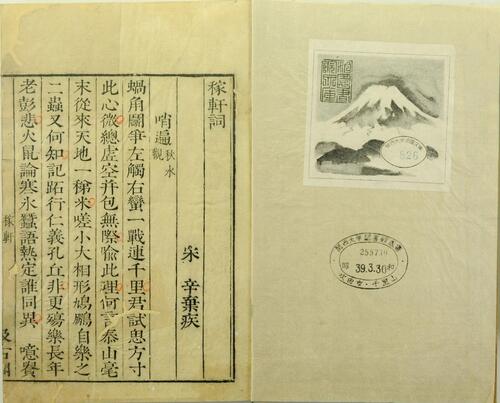 稼軒詞
宋 辛棄疾
哨遍 秋水觀
蝸角鬭爭左觸右蠻一戰連千里君試思方寸
此心微總虛空并包無際喻此理何言泰山毫
末從來天地一稊米嗟小大相形鳩鵬自樂之
二蟲又何知記跖行仁義孔丘非更殤樂長年
老彭悲火鼠論寒冰蠶語熱定誰同異 噫貴
稼軒
826
昭和
39.3.30